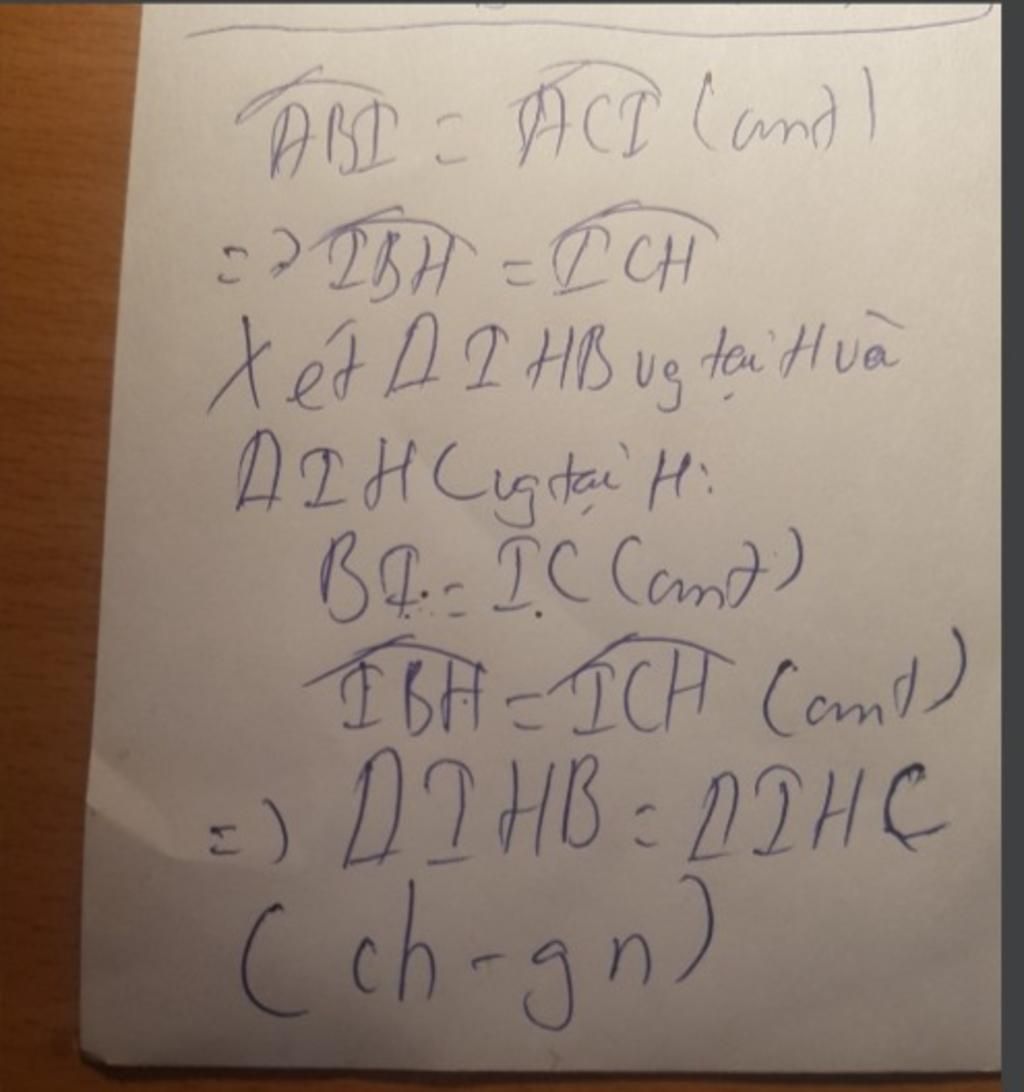 $\widehat{ABI} = \widehat{ACI}$ (cmt)
=> $\widehat{IBH} = \widehat{ICH}$
Xét Δ IHB vg tại H và
Δ IHC vg tại H:
BI = IC (cmt)
$\widehat{IBH} = \widehat{ICH}$ (cmt)
=> Δ IHB = Δ IHC
(ch-gn)